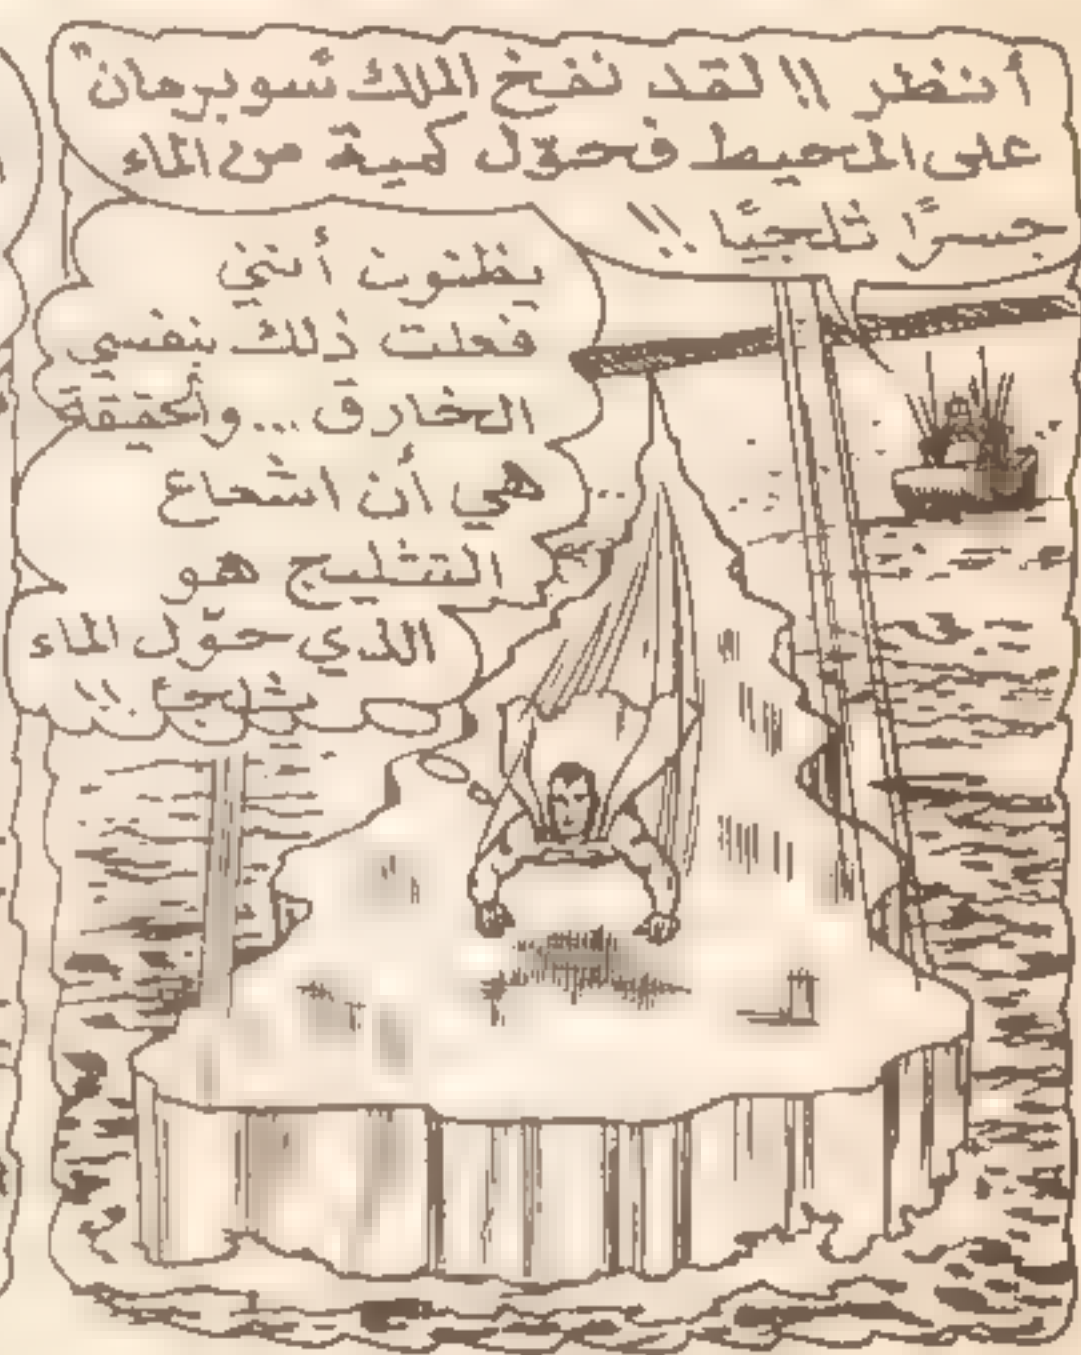 أنظر !! لقد نفخ الملك "سوبرمان"
على المحيط فحوّل كمية من الماء
جسرًا ثلجيًا !!
يظنون أنني
فعلت ذلك بنفسي
الخارق ... والحقيقة
هي أن اشعاع
التثليج هو
الذي حوّل الماء
ثلجا !!